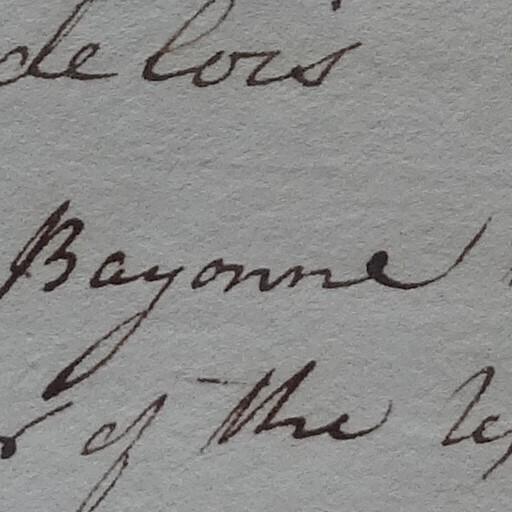 de lois
Bayonne
of the